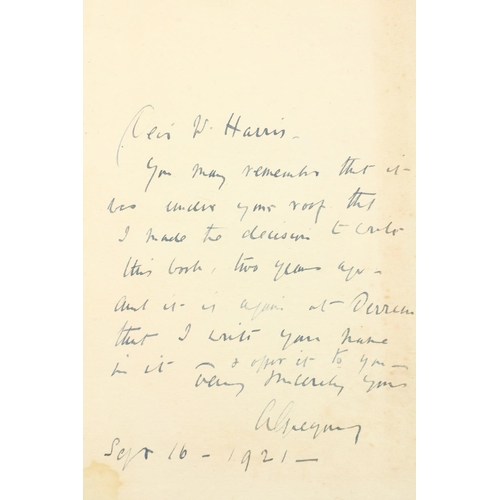 Dear Dr Harris -
You may remember that it
was under your roof that
I made the decision to write
this book, two years ago -
And it is again at Derreen
that I write your name
in it & offer it to you -
Very sincerely yours
A Gregory
Sept 16 - 1921 -